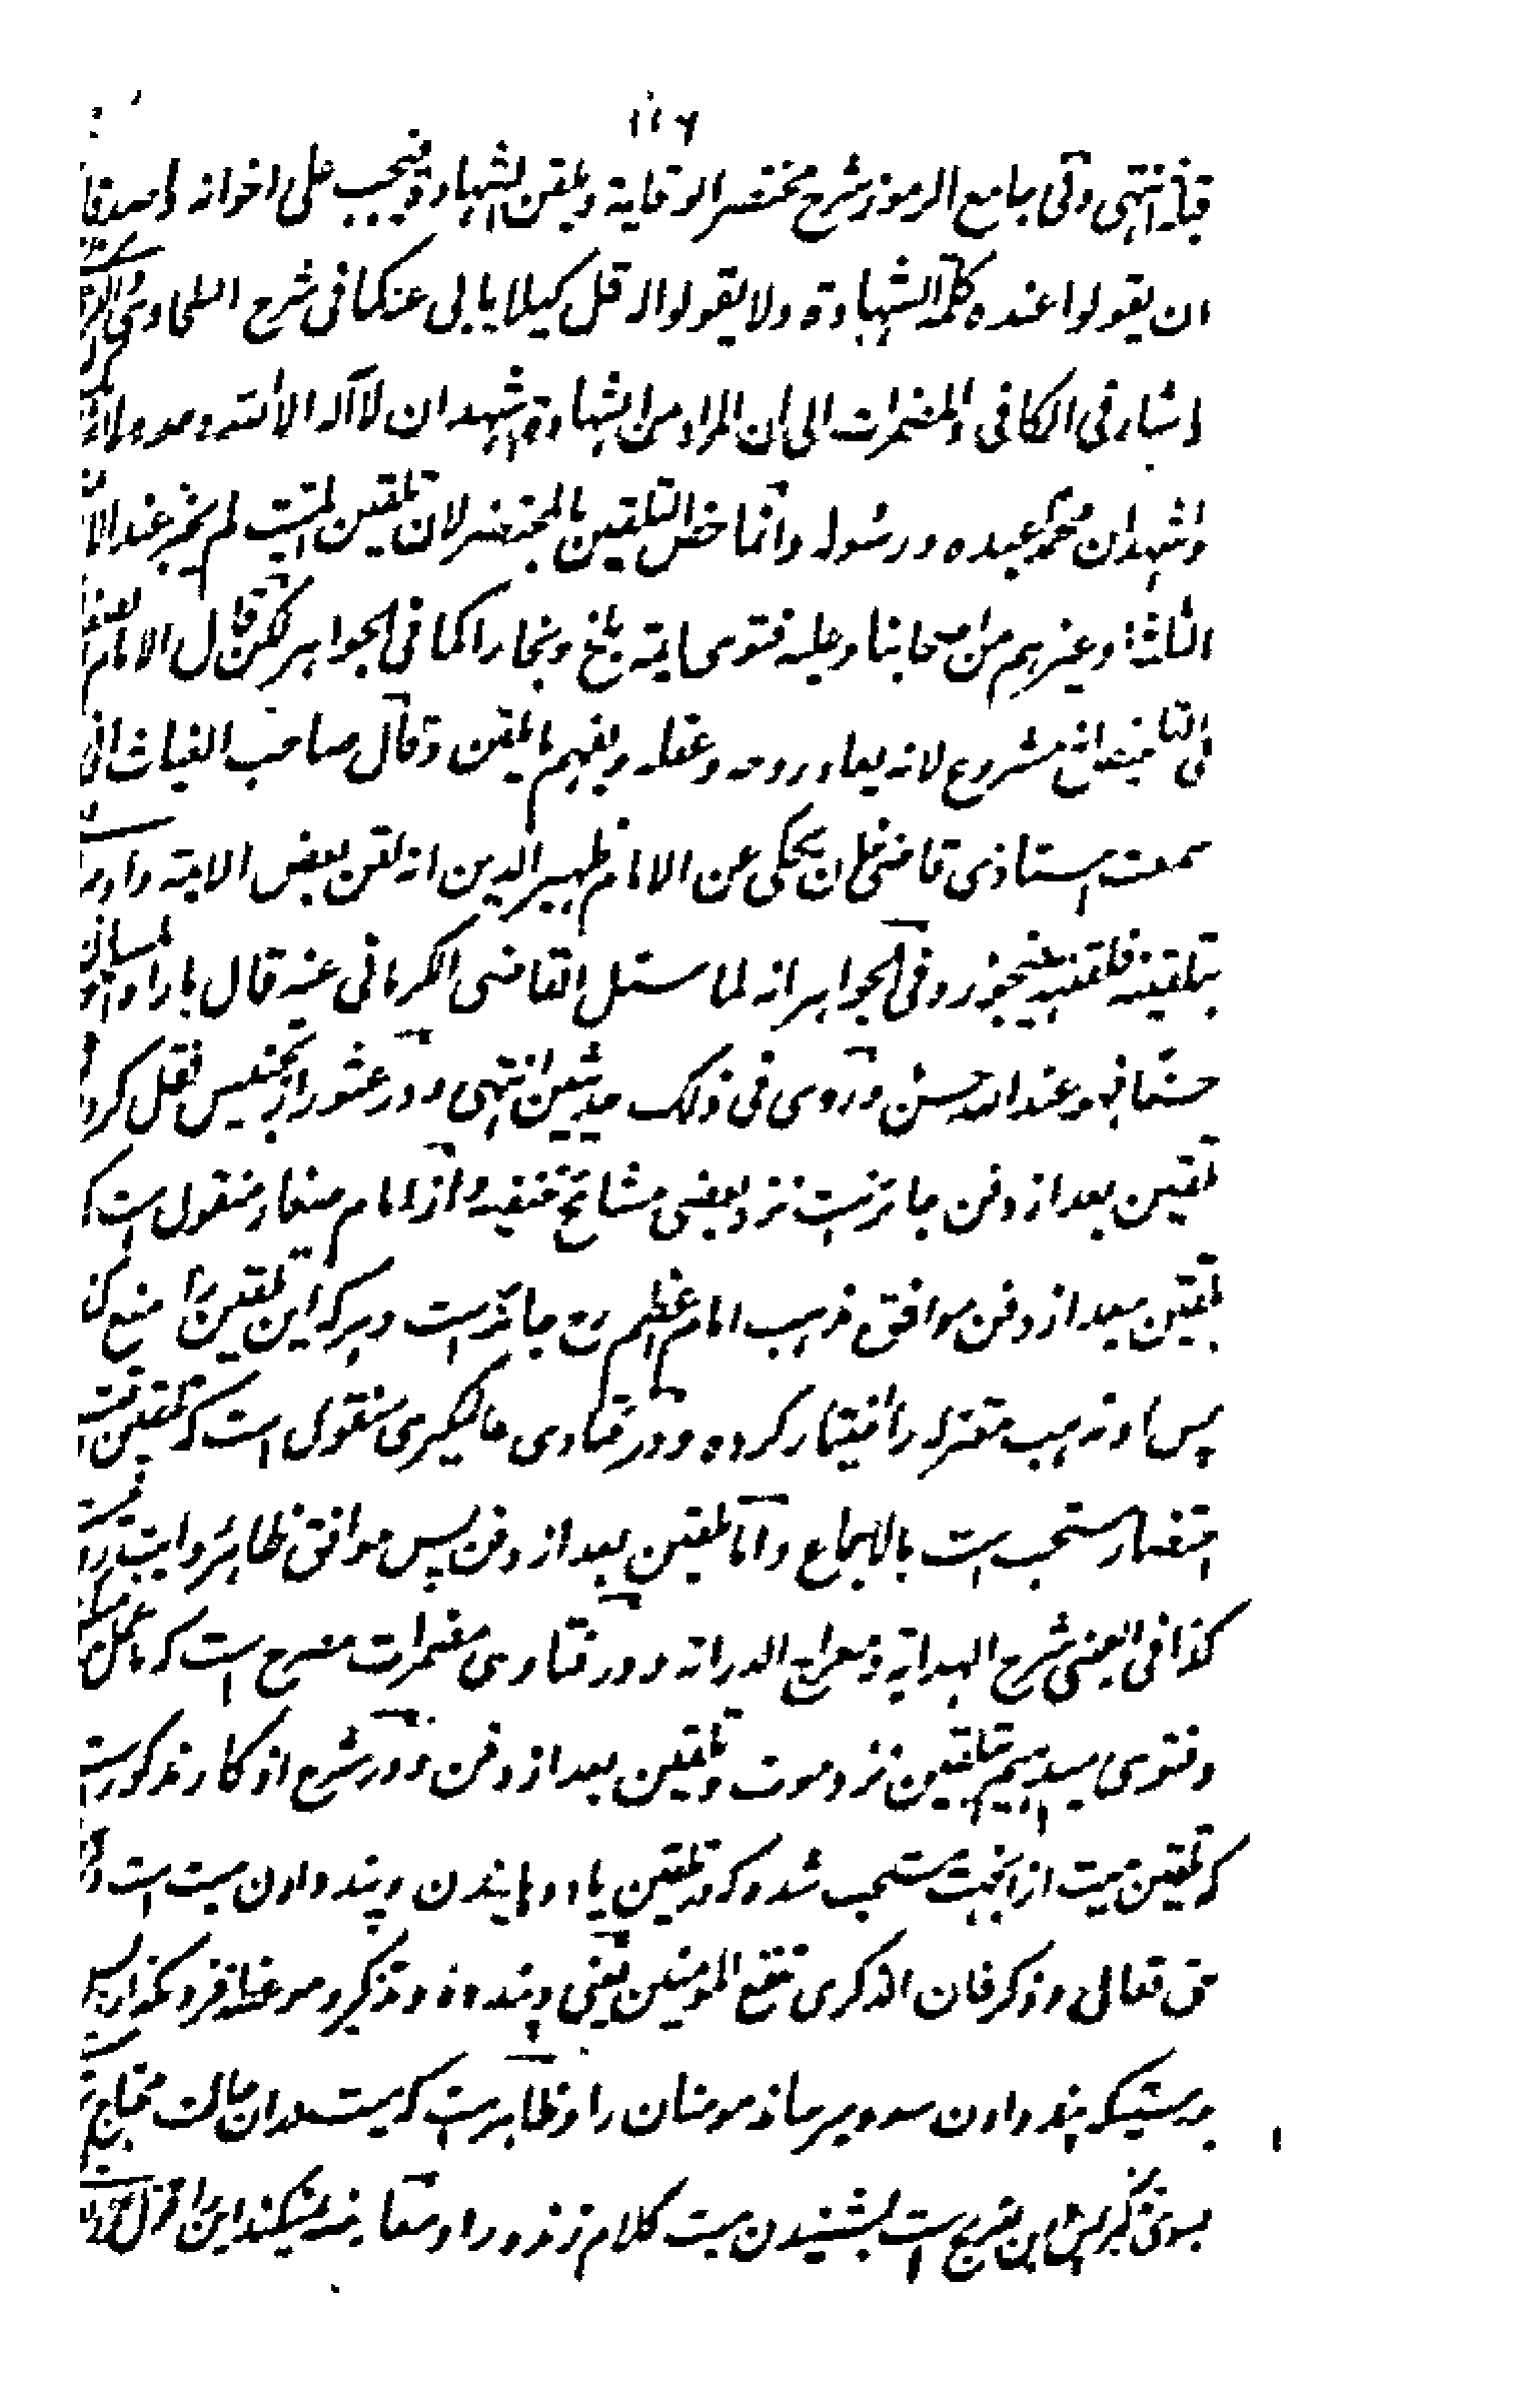 ۱۱۶
قبله انتهی وفی جامع الرموز شرح مختصر الوقایة ویلقن الشهادة فیجب علی اخوانه واصدقا
ان یقولوا عنده کلمة الشهادة ولا یقولوا له قل کیلا یابی عنه کما فی شرح الطحاوی
اشار فی الکافی والمضمرات الی ان المراد من الشهادة اشهد ان لا اله الا الله وحده لا
واشهد ان محمدا عبده ورسوله وانما خص التلقین بالمحتضر لان تلقین المیت لم یجز عند
الثلثة وغیرهم من اصحابنا وعلیه فتوی ایمة بلخ وبخارا کما فی الجواهر لکن قال الامام
ان التلقین مشروع لانه یعاد روحه وعقله ویفهم ما یلقن وقال صاحب الغیاث انی
سمعت استاذی قاضی خان یحکی عن الامام ظهیر الدین انه لقن بعض الایمة و
بتلقینه فلقنته فیجوز وفی الجواهر انه لما سئل القاضی الکرمانی عنه قال ما راه المسلمون
حسنا فهو عند الله حسن وروی فی ذلک حدیثین انتهی ودر عشور از تجنیس نقل کرده
تلقین بعد از دفن جائز است نزد بعضی مشائخ حنفیه واز امام صفار منقول است که
تلقین بعد از دفن موافق مذهب امام اعظم رح جائز است وهرکه این تلقین را منع کند
پس او مذهب معتزله را اختیار کرده ودر فتاوی عالمگیری منقول است که تلقین
احتضار مستحب است بالاجماع واما تلقین بعد از دفن پس موافق ظاهر روایت
کذا فی العینی شرح الهدایة ومعراج الدرایه ودر فتاوی مضمرات مصرح است که ما عمل
وفتوی میدهیم بتلقین نزد موت وتلقین بعد از دفن ودر شرح اذکار مذکورست
که تلقین میت ازانجهت مستحب شده که در تلقین یاد دهانیدن وپند دادن میت است
حق تعالی وذکر فان الذکری تنفع المومنین یعنی وپند ده وتذکیر وموعظه فرو مگذار
بدرستیکه پند دادن سود میرساند مومنان را وظاهر است که میت دران حالت محتاج
بسوی تذکیر پس این صریح است بشنیدن میت کلام زنده را ومعارضه نمیکند این را قول